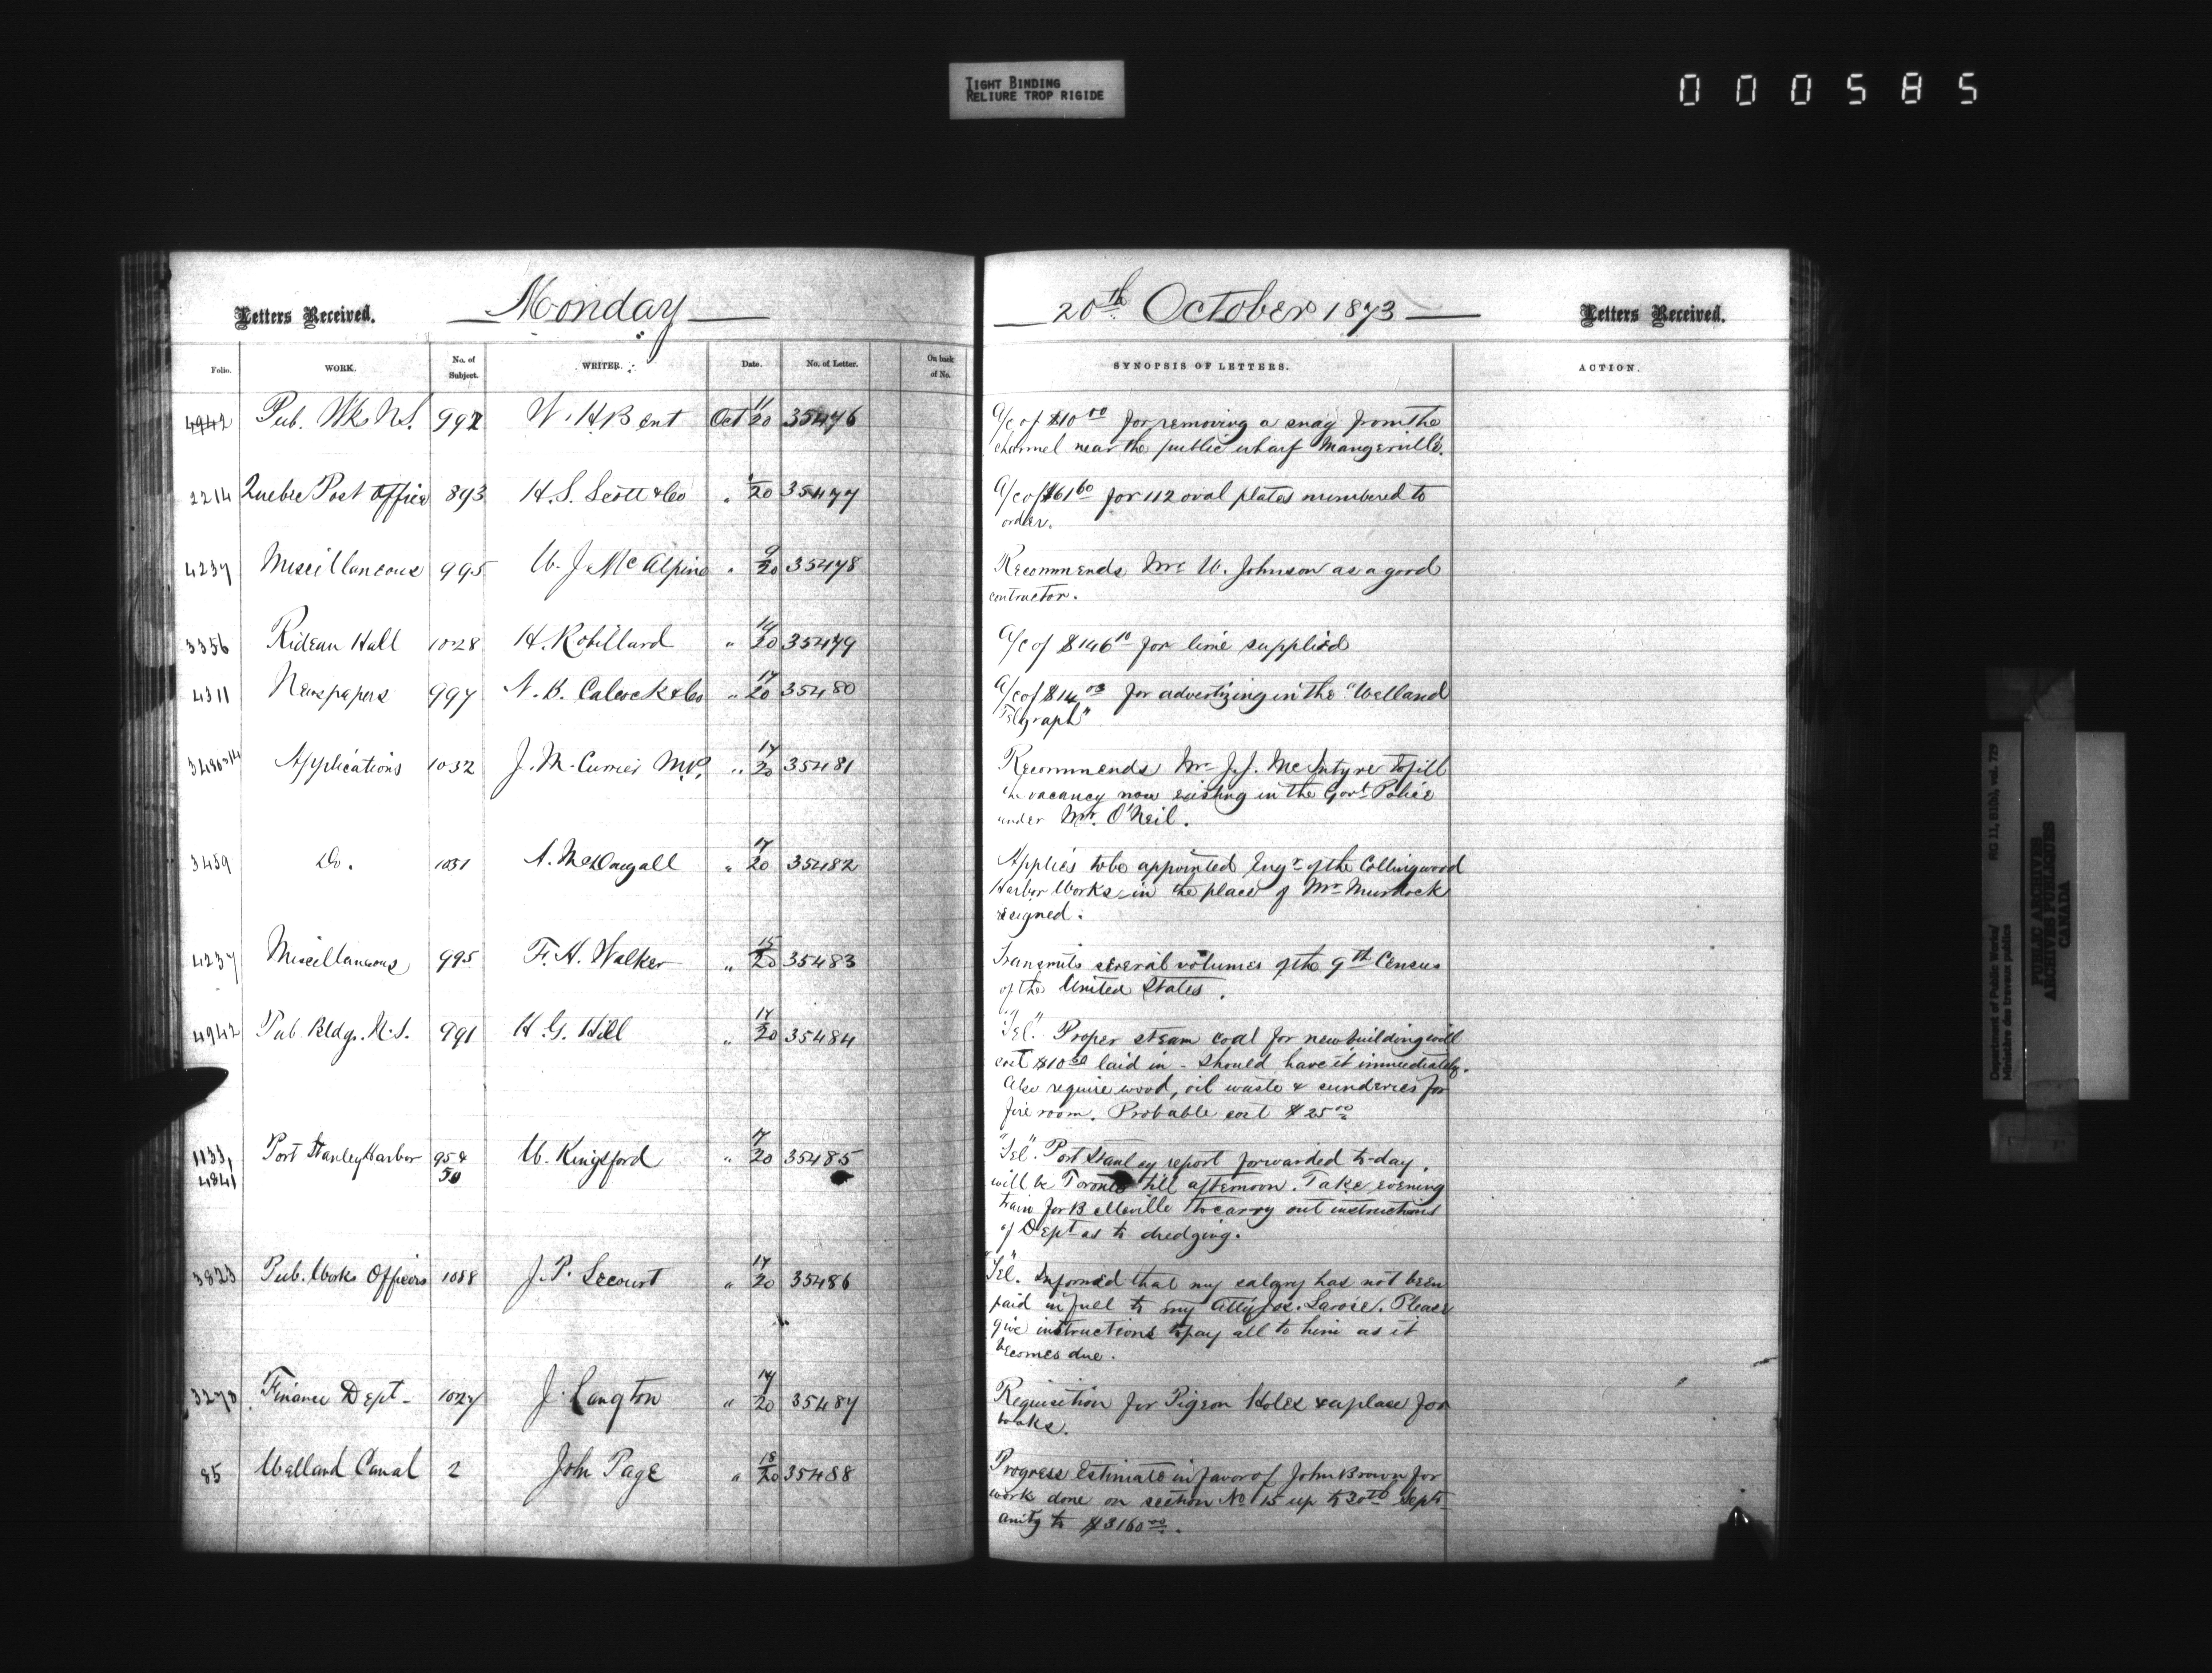 TIGHT BINDING
RELIURE TROP RIGIDE
000585
Letters Received. Monday
Folio. WORK. No. of Subject. WRITER. Date. No. of Letter. On back of No.
4942 Pub. Wks N.S. 992 W. H. Bent Oct 11/20 35476
2214 Quebec Post Office 893 H. S. Scott & Co " /20 35477
4237 Miscellaneous 995 W. J. McAlpine " 9/20 35478
3356 Rideau Hall 1028 H. Robillard " 14/20 35479
4311 Newspapers 997 N. B. Colcock & Co " 17/20 35480
Applications 1032 J. M. Currier M.P. " 17/20 35481
3459 Do. 1031 A. McDougall " 17/20 35482
4237 Miscellaneous 995 F. A. Walker " 15/20 35483
4942 Pub. Bldgs. N.S. 991 H. G. Hill " 17/20 35484
1133, Port Stanley Harbor 95 & W. Kingsford " 7/20 35485
4841 50
3823 Pub. Works Officers 1088 J. P. Lecourt " 17/20 35486
3270 Finance Dept. 1027 J. Langton " 17/20 35487
85 Welland Canal 2 John Page " 18/20 35488
20th October 1873 Letters Received.
SYNOPSIS OF LETTERS. ACTION.
A/c of $10 00 for removing a snag from the
channel near the public wharf Maugerville.
A/c of $61 60 for 112 oval plates numbered to
order.
Recommends Mr. W. Johnson as a good
contractor.
A/c of $146 10 for lime supplied
A/c of $14 03 for advertizing in the "Welland
Telgraph"
Recommends Mr. J. J. McIntyre to fill
the vacancy now existing in the Govt. Police
under Mr. O'Neil.
Applies to be appointed Engr. of the Collingwood
Harbor Works in the place of Mr. Murdock
resigned.
Transmits several volumes of the 9th Census
of the United States.
"Tel". Proper steam coal for new building will
cost $10 50 laid in - Should have it immediately.
Also require wood, oil waste & sunderies for
fire room. Probable cost $25 00
"Tel". Port Stanley report forwarded to-day.
will be Toronto till afternoon. Take evening
train for Belleville to carry out instructions
of Dept as to dredging.
"Tel". Informed that my salary has not been
paid in full to my atty Jos. Larose. Please
give instructions to pay all to him as it
becomes due.
Requisition for Pigeon Holes & a place for
books.
Progress Estimate in favor of John Brown for
work done on section No 15 up to 30th Sept.
amtg to $3160 00.
Department of Public Works/ RG 11, B1(b), vol. 729
Ministère des travaux publics
PUBLIC ARCHIVES
ARCHIVES PUBLIQUES
CANADA